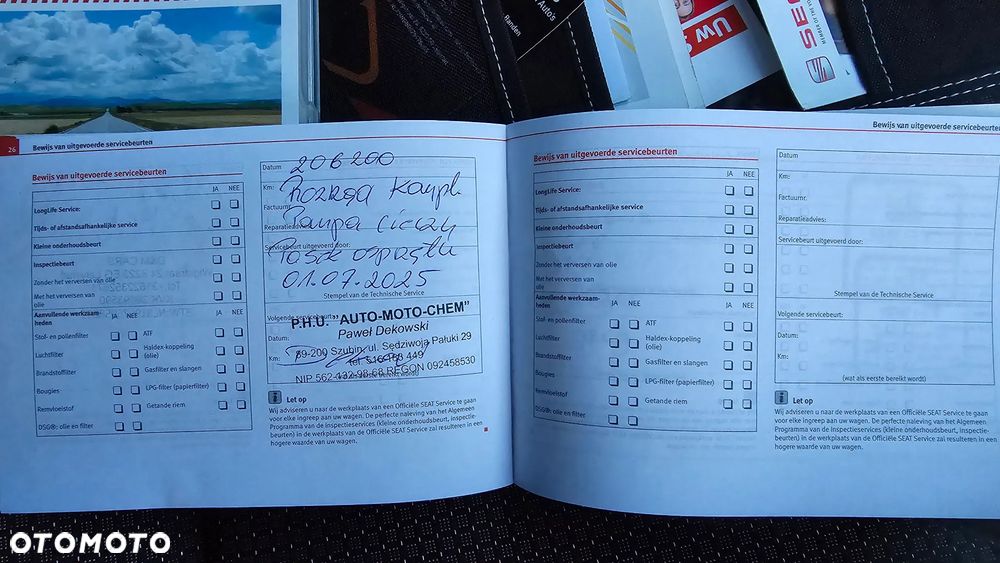 Autos
Randen
Uw S
SEAT
MEMBER OF THE VO
26
Bewijs van uitgevoerde servicebeurten
Bewijs van uitgevoerde servicebeurten
JA NEE
LongLife Service:
Tijds- of afstandsafhankelijke service
Kleine onderhoudsbeurt
Inspectiebeurt
Zonder het verversen van olie
Met het verversen van
olie
Aanvullende werkzaam-
heden
JA NEE
JA NEE
Stof- en pollenfilter
ATF
Luchtfilter
Haldex-koppeling
(olie)
Brandstoffilter
Gasfilter en slangen
Bougies
LPG-filter (papierfilter)
Remvloeistof
Getande riem
DSG®: olie en filter
Datum: 206200
Km: Rozrząd Kompl.
Factuurnr.
Pompa Cieczy
Reparatieadvies:
Servicebeurt uitgevoerd door:
Pasek osprzętu
01.07.2025
Stempel van de Technische Service
Volgende servicebeurt:
P.H.U. "AUTO-MOTO-CHEM"
Datum:
Paweł Dekowski
Km:
89-200 Szubin, ul. Sędziwoja Pałuki 29
tel. 516 168 449
NIP 562-132-98-68 REGON 092458530
Let op
Wij adviseren u naar de werkplaats van een Officiële SEAT Service te gaan
voor elke ingreep aan uw wagen. De perfecte naleving van het Algemeen
Programma van de inspectieservices (kleine onderhoudsbeurt, inspectie-
beurten) in de werkplaats van de Officiële SEAT Service zal resulteren in een
hogere waarde van uw wagen.
Bewijs van uitgevoerde servicebeurten
Bewijs van uitgevoerde servicebeurten
JA NEE
LongLife Service:
Tijds- of afstandsafhankelijke service
Kleine onderhoudsbeurt
Inspectiebeurt
Zonder het verversen van olie
Met het verversen van
olie
Aanvullende werkzaam-
heden
JA NEE
JA NEE
Stof- en pollenfilter
ATF
Luchtfilter
Haldex-koppeling
(olie)
Brandstoffilter
Gasfilter en slangen
Bougies
LPG-filter (papierfilter)
Remvloeistof
Getande riem
DSG®: olie en filter
Datum
Km:
Factuurnr.
Reparatieadvies:
Servicebeurt uitgevoerd door:
Stempel van de Technische Service
Volgende servicebeurt:
Datum:
Km:
(wat als eerste bereikt wordt)
Let op
Wij adviseren u naar de werkplaats van een Officiële SEAT Service te gaan
voor elke ingreep aan uw wagen. De perfecte naleving van het Algemeen
Programma van de inspectieservices (kleine onderhoudsbeurt, inspectie-
beurten) in de werkplaats van de Officiële SEAT Service zal resulteren in een
hogere waarde van uw wagen.
OTOMOTO